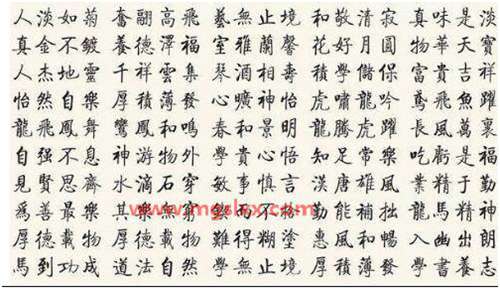 人淡如菊 奮翮高飛 藝無止境 和敬清寂 真味是淡
真金不鍍 養德澤福 室雅蘭馨 花好月圓 物華天寶
人杰地靈 千祥雲集 琴酒相壽 積學儲保 富貴吉祥
怡然自樂 厚積薄發 心曠神怡 虎嘯龍吟 鳶飛魚躍
龍飛鳳舞 鸞鳳和鳴 春和景明 龍騰虎躍 長風萬裏
自强不息 神游物外 學貴心悟 知足常樂 吃虧是福
見賢思齊 水滴石穿 敏事慎言 漢唐雄風 業精于勤
爲善最樂 其樂無窮 勤能補拙 馬精神
厚德載物 難得糊塗 惠風和暢 入幽出朗
馬到功成 道法自然 學無止境 厚積薄發 學書養志